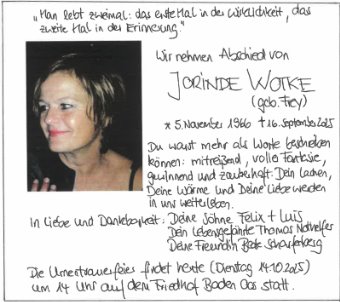 „Man lebt zweimal: das erste Mal in der Wirklichkeit, das
zweite Mal in der Erinnerung."
Wir nehmen Abschied von
JORINDE WOTKE
(geb. Frey)
* 5. November 1966 + 16. September 2025
Du warst mehr als Worte beschreiben
können: mitreißend, voller Fantasie,
gewinnend und zauberhaft. Dein Lachen,
Deine Wärme und Deine Liebe werden
in uns weiterleben.
In Liebe und Dankbarkeit: Deine Söhne Felix + Luis
Dein Lebensgefährte Thomas Nothelfer
Deine Freundin Beate Scharfenberg
Die Urnentrauerfeier findet heute (Dienstag 14.10.2025)
um 14 Uhr auf dem Friedhof Baden Oos statt.